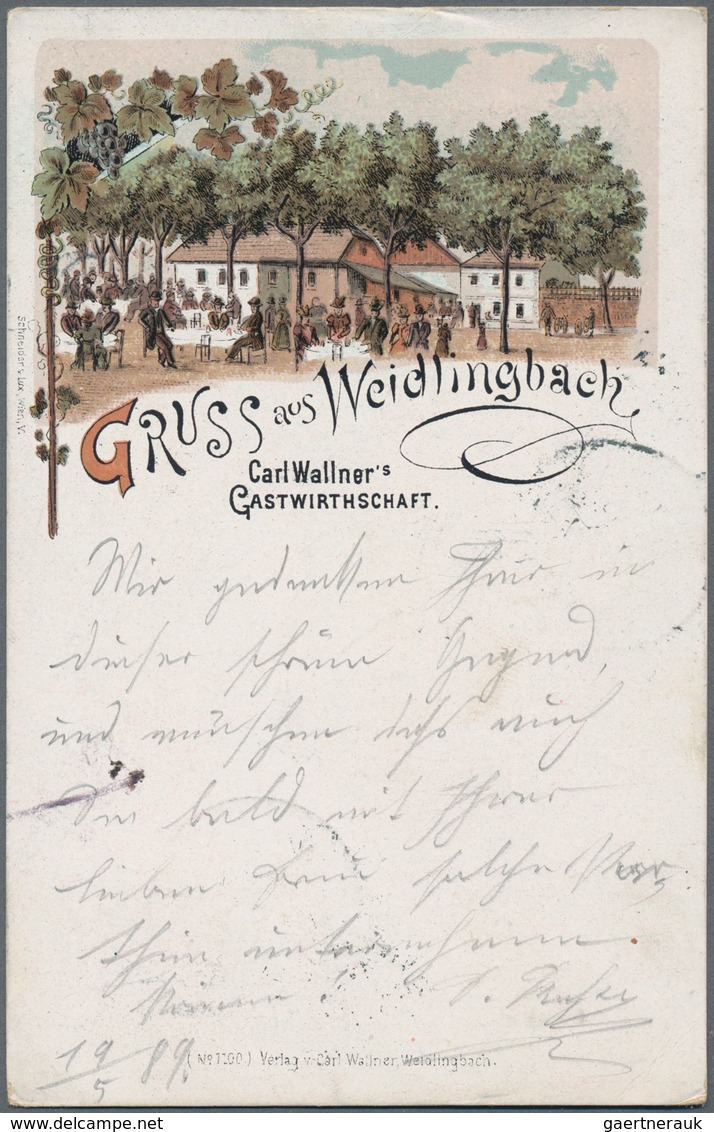 GRUSS aus Weidlingbach
Carl Wallner's
GASTWIRTHSCHAFT.
Schneider & Lux, Wien, V.
Wir gedenken Ihrer in
dieser schönen Gegend,
und wünschen daß auch
Sie bald mit Ihrer
lieben Frau solche
unternehmen.
19/5 99.
(No 1100.) Verlag v. Carl Wallner, Weidlingbach.
gaertnerauk